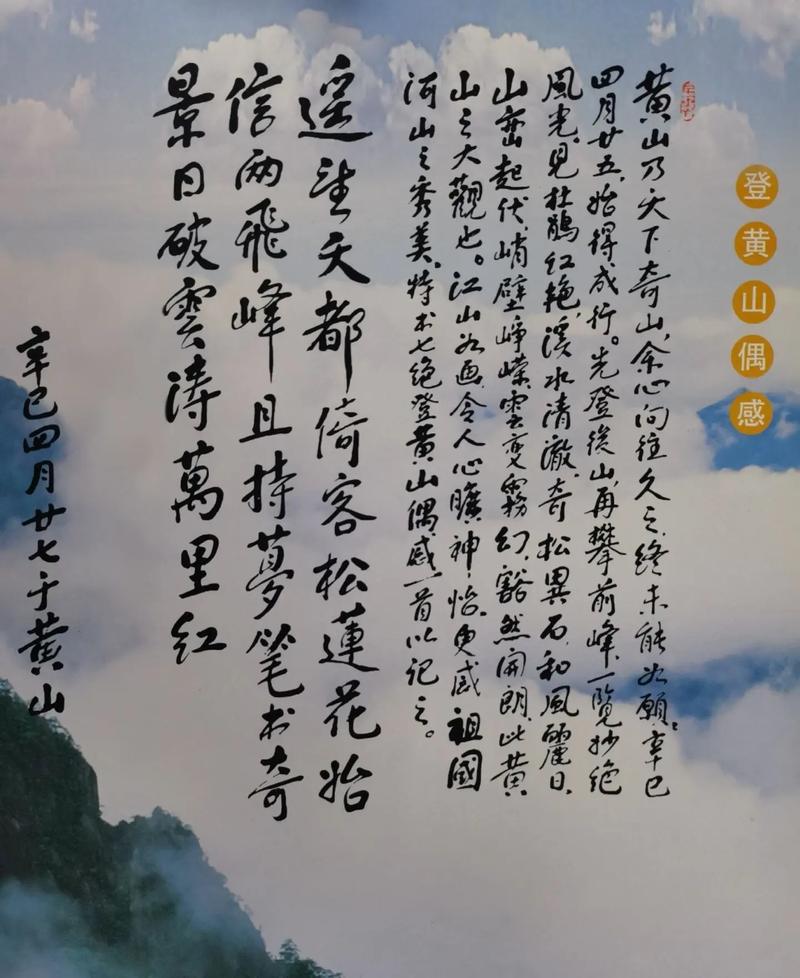 登黄山偶感
黄山乃天下奇山，余心向往久之，终未能如願。辛巳
四月廿五，始得成行。先登後山，再攀前峰，一覽抄絶
風光，見杜鹃红艳，溪水清澈，奇松異石，和風麗日，
山峦起伏，峭壁峥嵘，雲变霧幻，豁然开朗，此黄
山之大觀也。江山如画，令人心曠神怡，更感祖國
河山之秀美，特书七绝登黄山偶感一首以记之。
遥望天都倚客松蓮花始
信两飛峰且持夢笔书奇
景日破雲涛萬里红
辛巳四月廿七于黄山